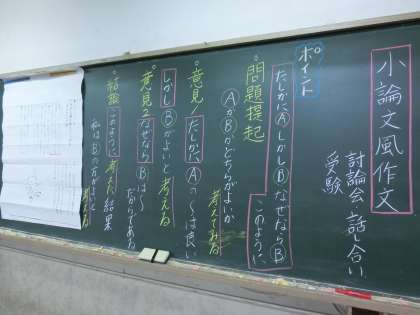 小論文風作文
討論会、話し合い、
受験
ポイント
たしかにⒶしかしⒷなぜならⒷ
このように、
問題提起
ⒶかⒷかどちらがよいか
考えてみる
意見
たしかに、Ⓐの〜は良い
しかしⒷがよいと考える
意見2なぜならⒷは〜
だからである
結論このように考えた結果
私はⒷの方がよいと考える